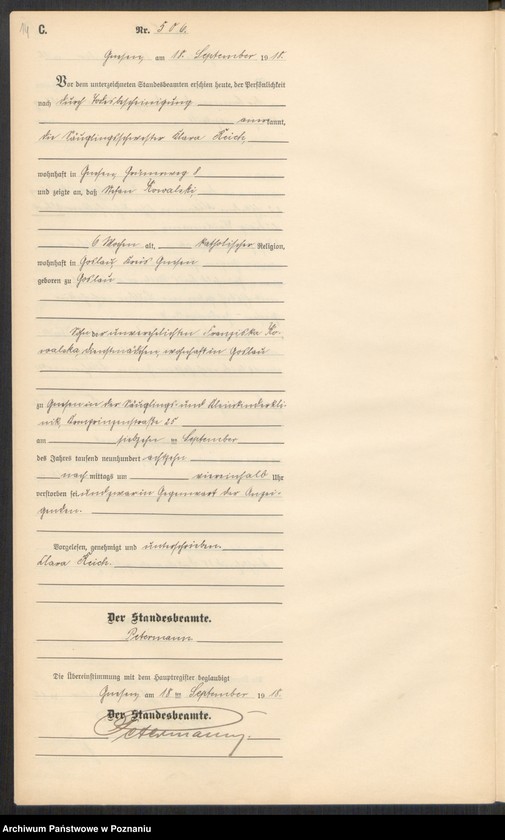 C. Nr. 506.
Gnesen, am 18. September 1918.
Vor dem unterzeichneten Standesbeamten erschien heute, der Persönlichkeit
nach durch Todesbescheinigung
anerkannt,
die Säuglingsschwester Clara Reich,
wohnhaft in Gnesen, 8
und zeigte an, daß Stefan Kowalski,
6 Wochen alt, katholischer Religion,
wohnhaft in Goslau, Kreis Gnesen
geboren zu Goslau
Sohn der unverehelichten Franziska Ko-
walska, Dienstmädchen, wohnhaft in Goslau
zu Gnesen in der Säuglings- und Kleinkinderkli-
nik, Kronprinzenstraße 25
am siebzehn ten September
des Jahres tausend neunhundert achtzehn
nach mittags um viereinhalb Uhr
verstorben sei, und zwar in Gegenwart der Anzei-
genden.
Vorgelesen, genehmigt und unterschrieben.
Clara Reich.
Der Standesbeamte.
Petermann
Die Übereinstimmung mit dem Hauptregister beglaubigt
Gnesen, am 18 ten September 1918.
Der Standesbeamte.
Petermann.
Archiwum Państwowe w Poznaniu